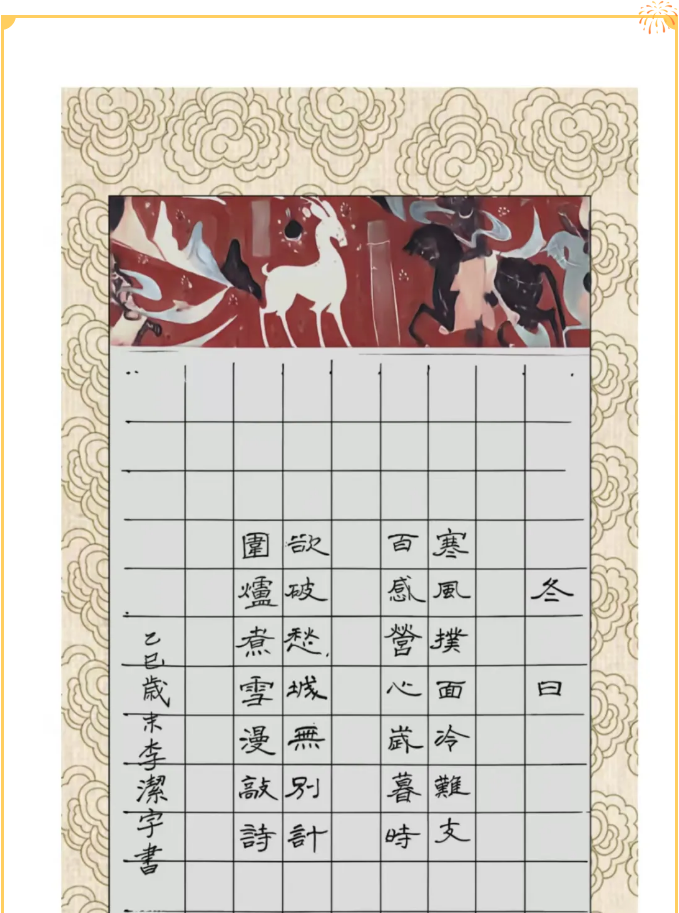 冬日
寒風撲面冷難支
百感營心歲暮時
欲破愁城無別計
圍爐煮雪漫敲詩
乙巳歲末李潔宇書